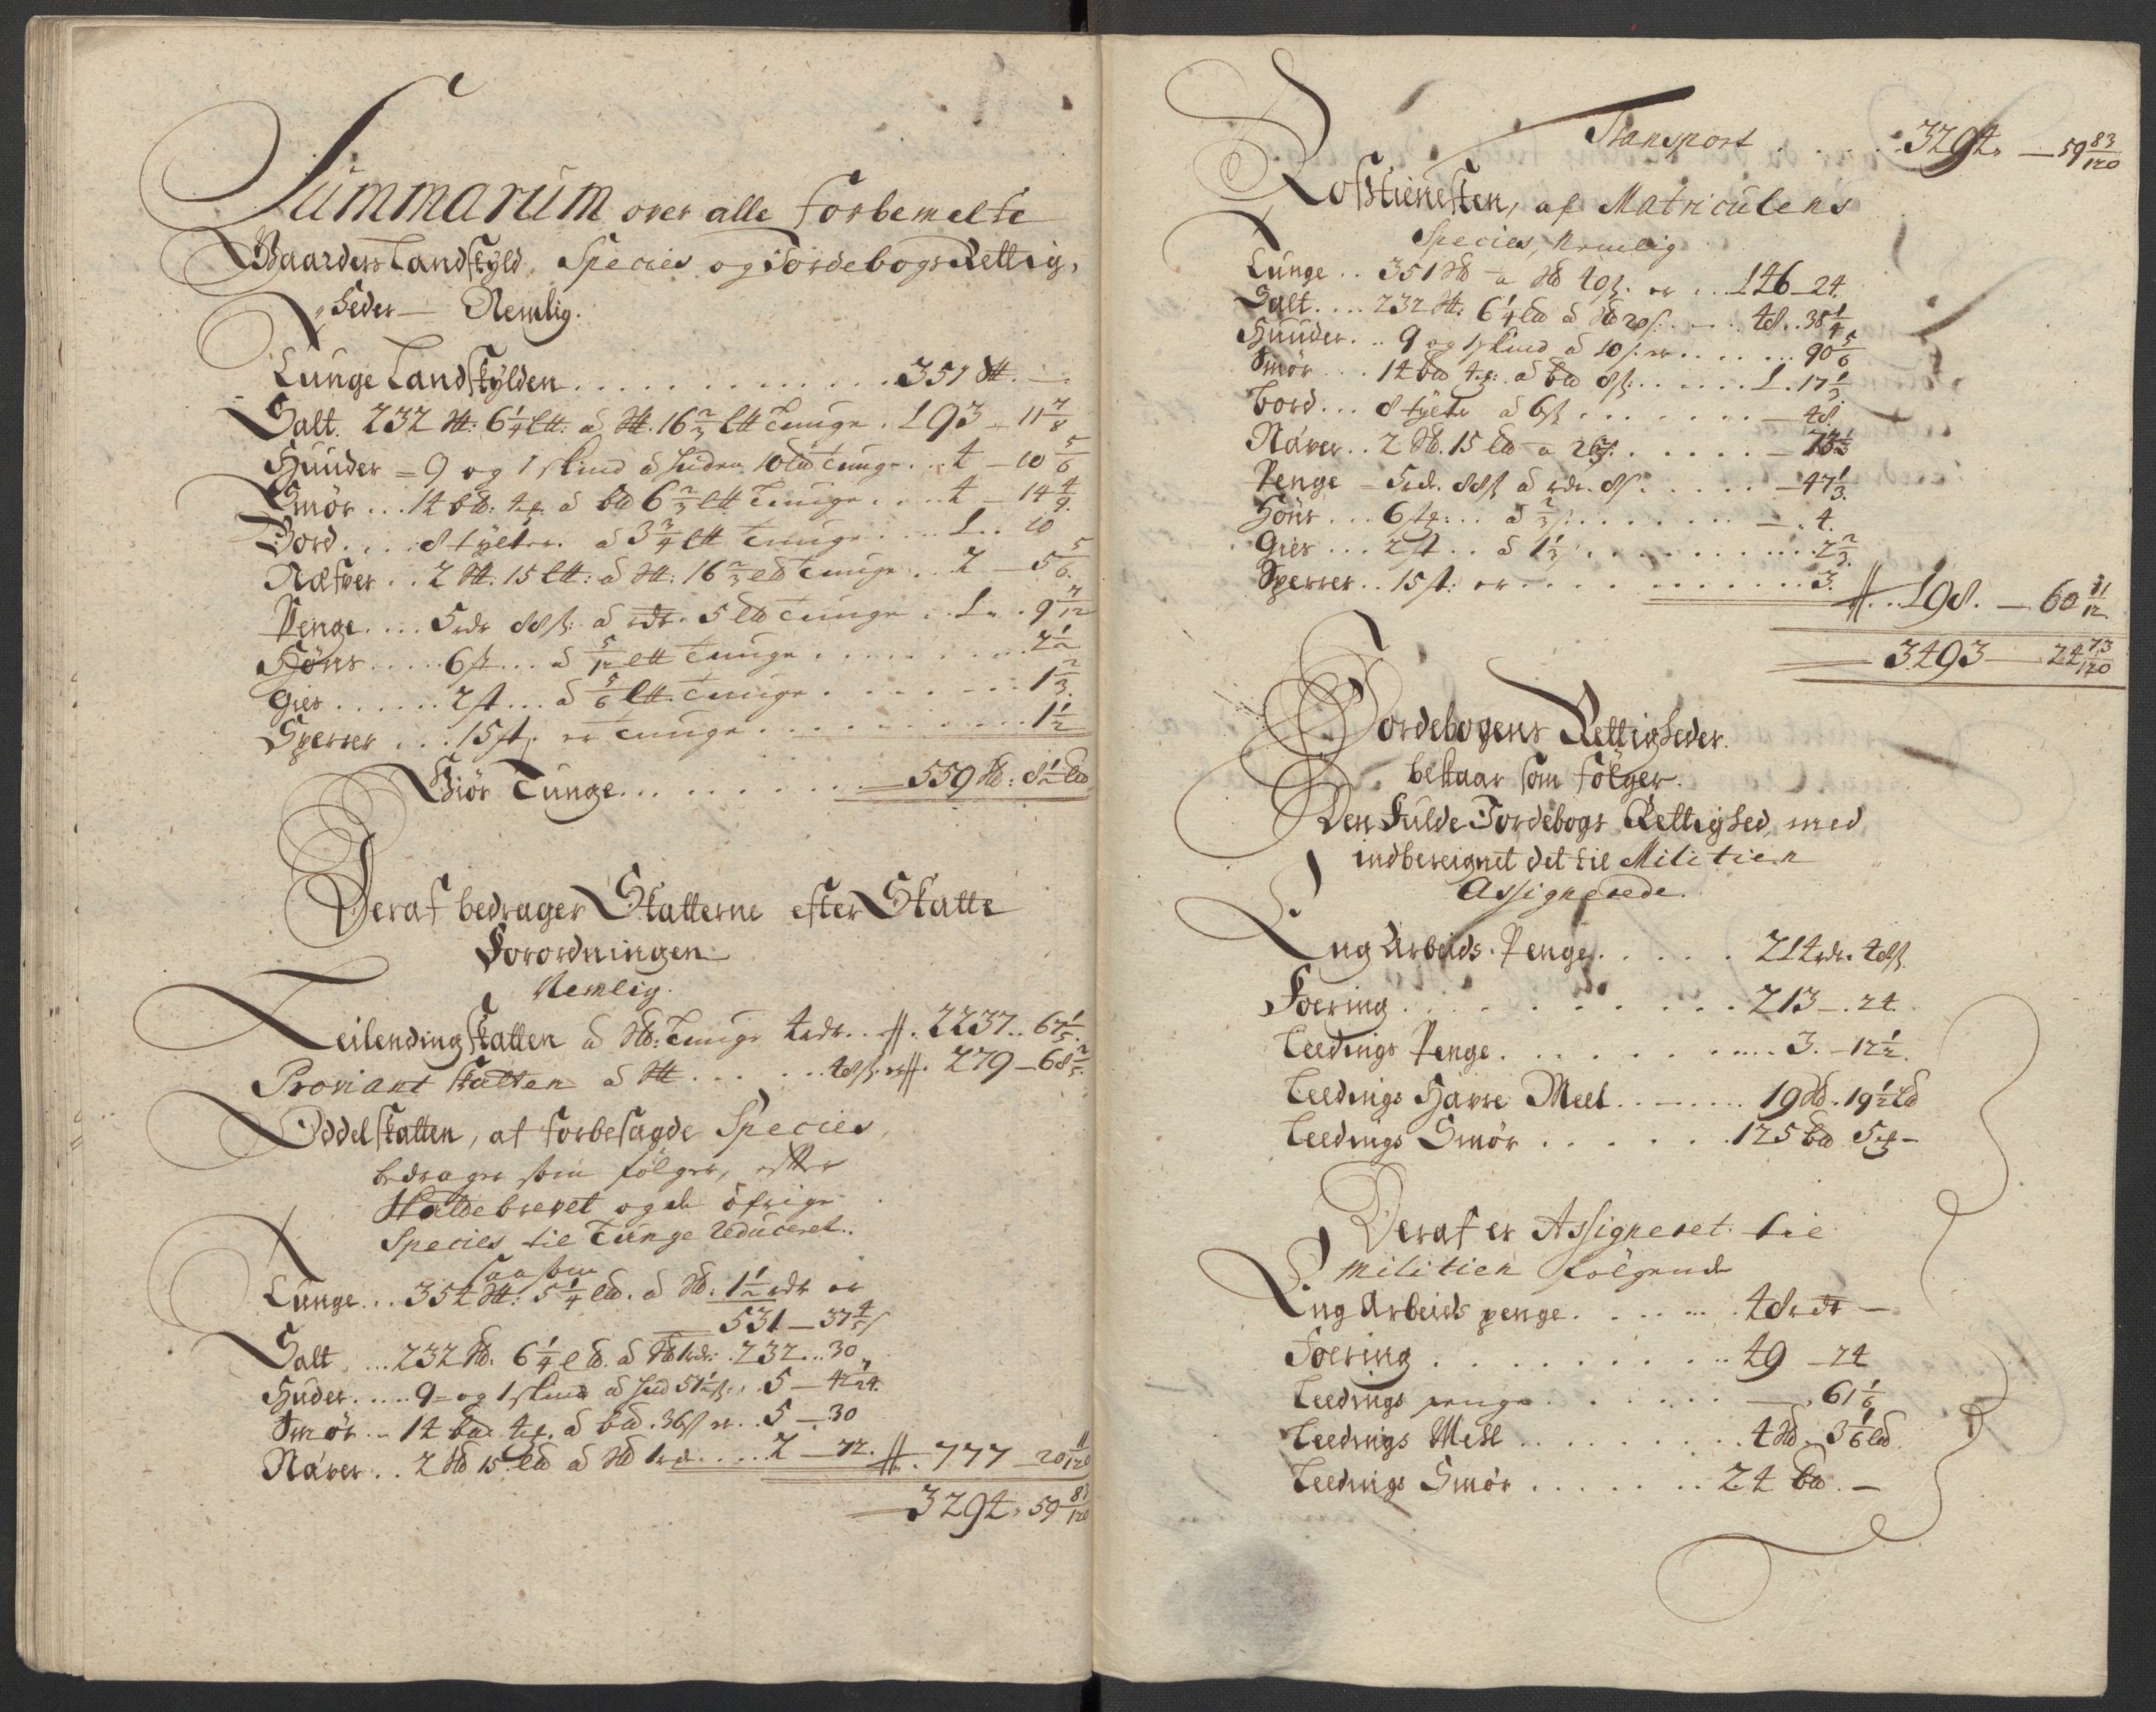 Summarum over alle forbemelte
Gaarders Landskyld, Species og Jordebogs Rettig,
heder — Nemlig.
Tunge Landskylden . . . . . . . . . . . . . 351 ℔. —
Salt. 232 ℔: 6 1/4 L℔: a ℔. 16 2/3 L℔ Tunge . 193 - 11 7/8
Huuder = 9 og 1 skind a huden 10 L℔ Tunge . . 4 - 10 5/6
Smör . . . 14 b℔: 4 a b℔ 6 2/3 L℔ Tunge . . . . 4 - 14 4/9.
Bord . . . . 8 tÿlter. a 3 3/4 L℔ Tunge . . . . 1 . . 10
Næfver . . 2 ℔. 15 L℔: a ℔: 16 2/3 L℔ Tunge . . 2 - 5 5/6.
Penge . . . . 5 rdr 88 s: a rdr. 5 L℔ Tunge . . 1 . . 9 7/12
Höns . . . . . 6 st . . . a 5/12 L℔ Tunge . . . . . . . . . 2 1/2
Gies . . . . . . 2 st . . . a 5/6 L℔. Tunge . . . . . . . . 1 2/3.
Sperrer . . . 15 st: er Tunge . . . . . . . . . . . . 1 1/2
Giör Tunge . . . . . . . . . 559 ℔: 8 1/2 L℔
Deraf bedrager Skatterne efter Skatte
Forordningen
Nemlig.
Leilendingskatten a ℔: Tunge 4 rdr . . #. 2237 . . 67 1/5.
Proviant skatten a ℔ . . . . . . 48 s. er #. 279 - 68 2/5.
Oddelskatten, af forbesagde Species,
bedrager som fölger, efter
Skaldebrevet og de öfrige
Species til Tunge reduceret.
saasom
Tunge . . . 354 ℔: 5 1/4 L℔. a ℔: 1 1/2 rdr er
531 — 37 4/5 s
Salt . . . 232 ℔. 6 1/4 L℔. a ℔ 1 rdr: . 232 . . . 30
Huder . . . . 9 = og 1 skind a hud 51 1/2 s . . 5 - 42
Smör . . 14 b℔ 4. a b℔. 36 s er . . 5 — 30
Næver . . 2 ℔ 15 L℔ a ℔ 1 rd . . . . 2 — 72. #. 777 — 20 11/120
3294 , 59 83/120
Transport . . . . . 3294, — 59 83/120
Rosstienesten, af Matriculens
Species, Nemlig
Tunge . . 351 ℔ — a ℔ 40 s. er . . . 146 - 24.
Salt . . . . 232 ℔: 6 1/4 L℔ a ℔ 20 s. . . . . 48 . . 38 1/4
Huuder . . . 9 og 1 skind a 10 s. er . . . . . . . 90 5/6
Smör . . . 14 b℔ 4: a b℔ 8 s: . . . . . . 1 . 17 1/3.
Bord . . . 8 tÿlter a 6 s . . . . . . . . — 48.
Næver . . 2 ℔. 15 L℔ - a 26 s. . . . . . . — 73 1/3
Penge — 5 rdr. 88 s a rdr. 8 s . . . . . . — 47 1/3.
Höns . . . 6 st: . . . a 2/3 s . . . . . . . . — . 4.
Gies . . . 2 st . . . a 1 1/3 . . . . . . . . . . . . 2 2/3.
Sperrer . . 15 st: er . . . . . . . . . . . . . 3. #. . 198. — 60 11/12.
3493 — 24 73/120
Jordebogens Rettigheder.
bestaar som fölger.
Den Fulde Jordebogs Rettighed, med
indbereignet det til Militien
Assignerede.
Eng Arbeids Penge . . . . . . 214 rdr. 48 s.
Foering . . . . . . . . . . . . 213 — . 24.
Leedings Penge . . . . . . . . . . . 3. — 12 1/2.
Leedings Havre Meel . . — . . . 19 ℔. 19 1/2 L℔
Leedings Smör . . . . . . 125 b℔ 5 —
Deraf er Assigneret til
Militien fölgende
Eng Arbeids penge . . . . . . . . 48 rdr —
Foering . . . . . . . . . . . 49 — 24
Leedings penge . . . . . . . — . 61 1/6
Leedings Meel . . . . . . . . . 4 ℔ . 3 1/6 L℔.
Leedings Smör . . . . . . . 24 b℔. —